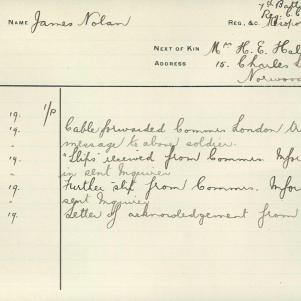 7th Batt
NAME James Nolan REG. &C. Mesopo
NEXT OF KIN Mrs H. E. Hal
ADDRESS 15. Charles S
Norwood
19. 1/P Cable forwarded Commrs London
" message to above soldier.
19. "Slips" received from Commrs. Infor
" in sent Inquirer
19. Further slip from Commrs. Infor
" sent Inquirer
19. Letter of acknowledgement from